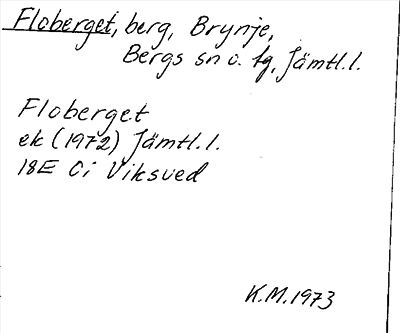 Floberget, berg, Brynje,
Bergs sn o. tg, Jämtl.l.
Floberget
ek (1972) Jämtl.l.
18E Ci Viksved
K.M.1973